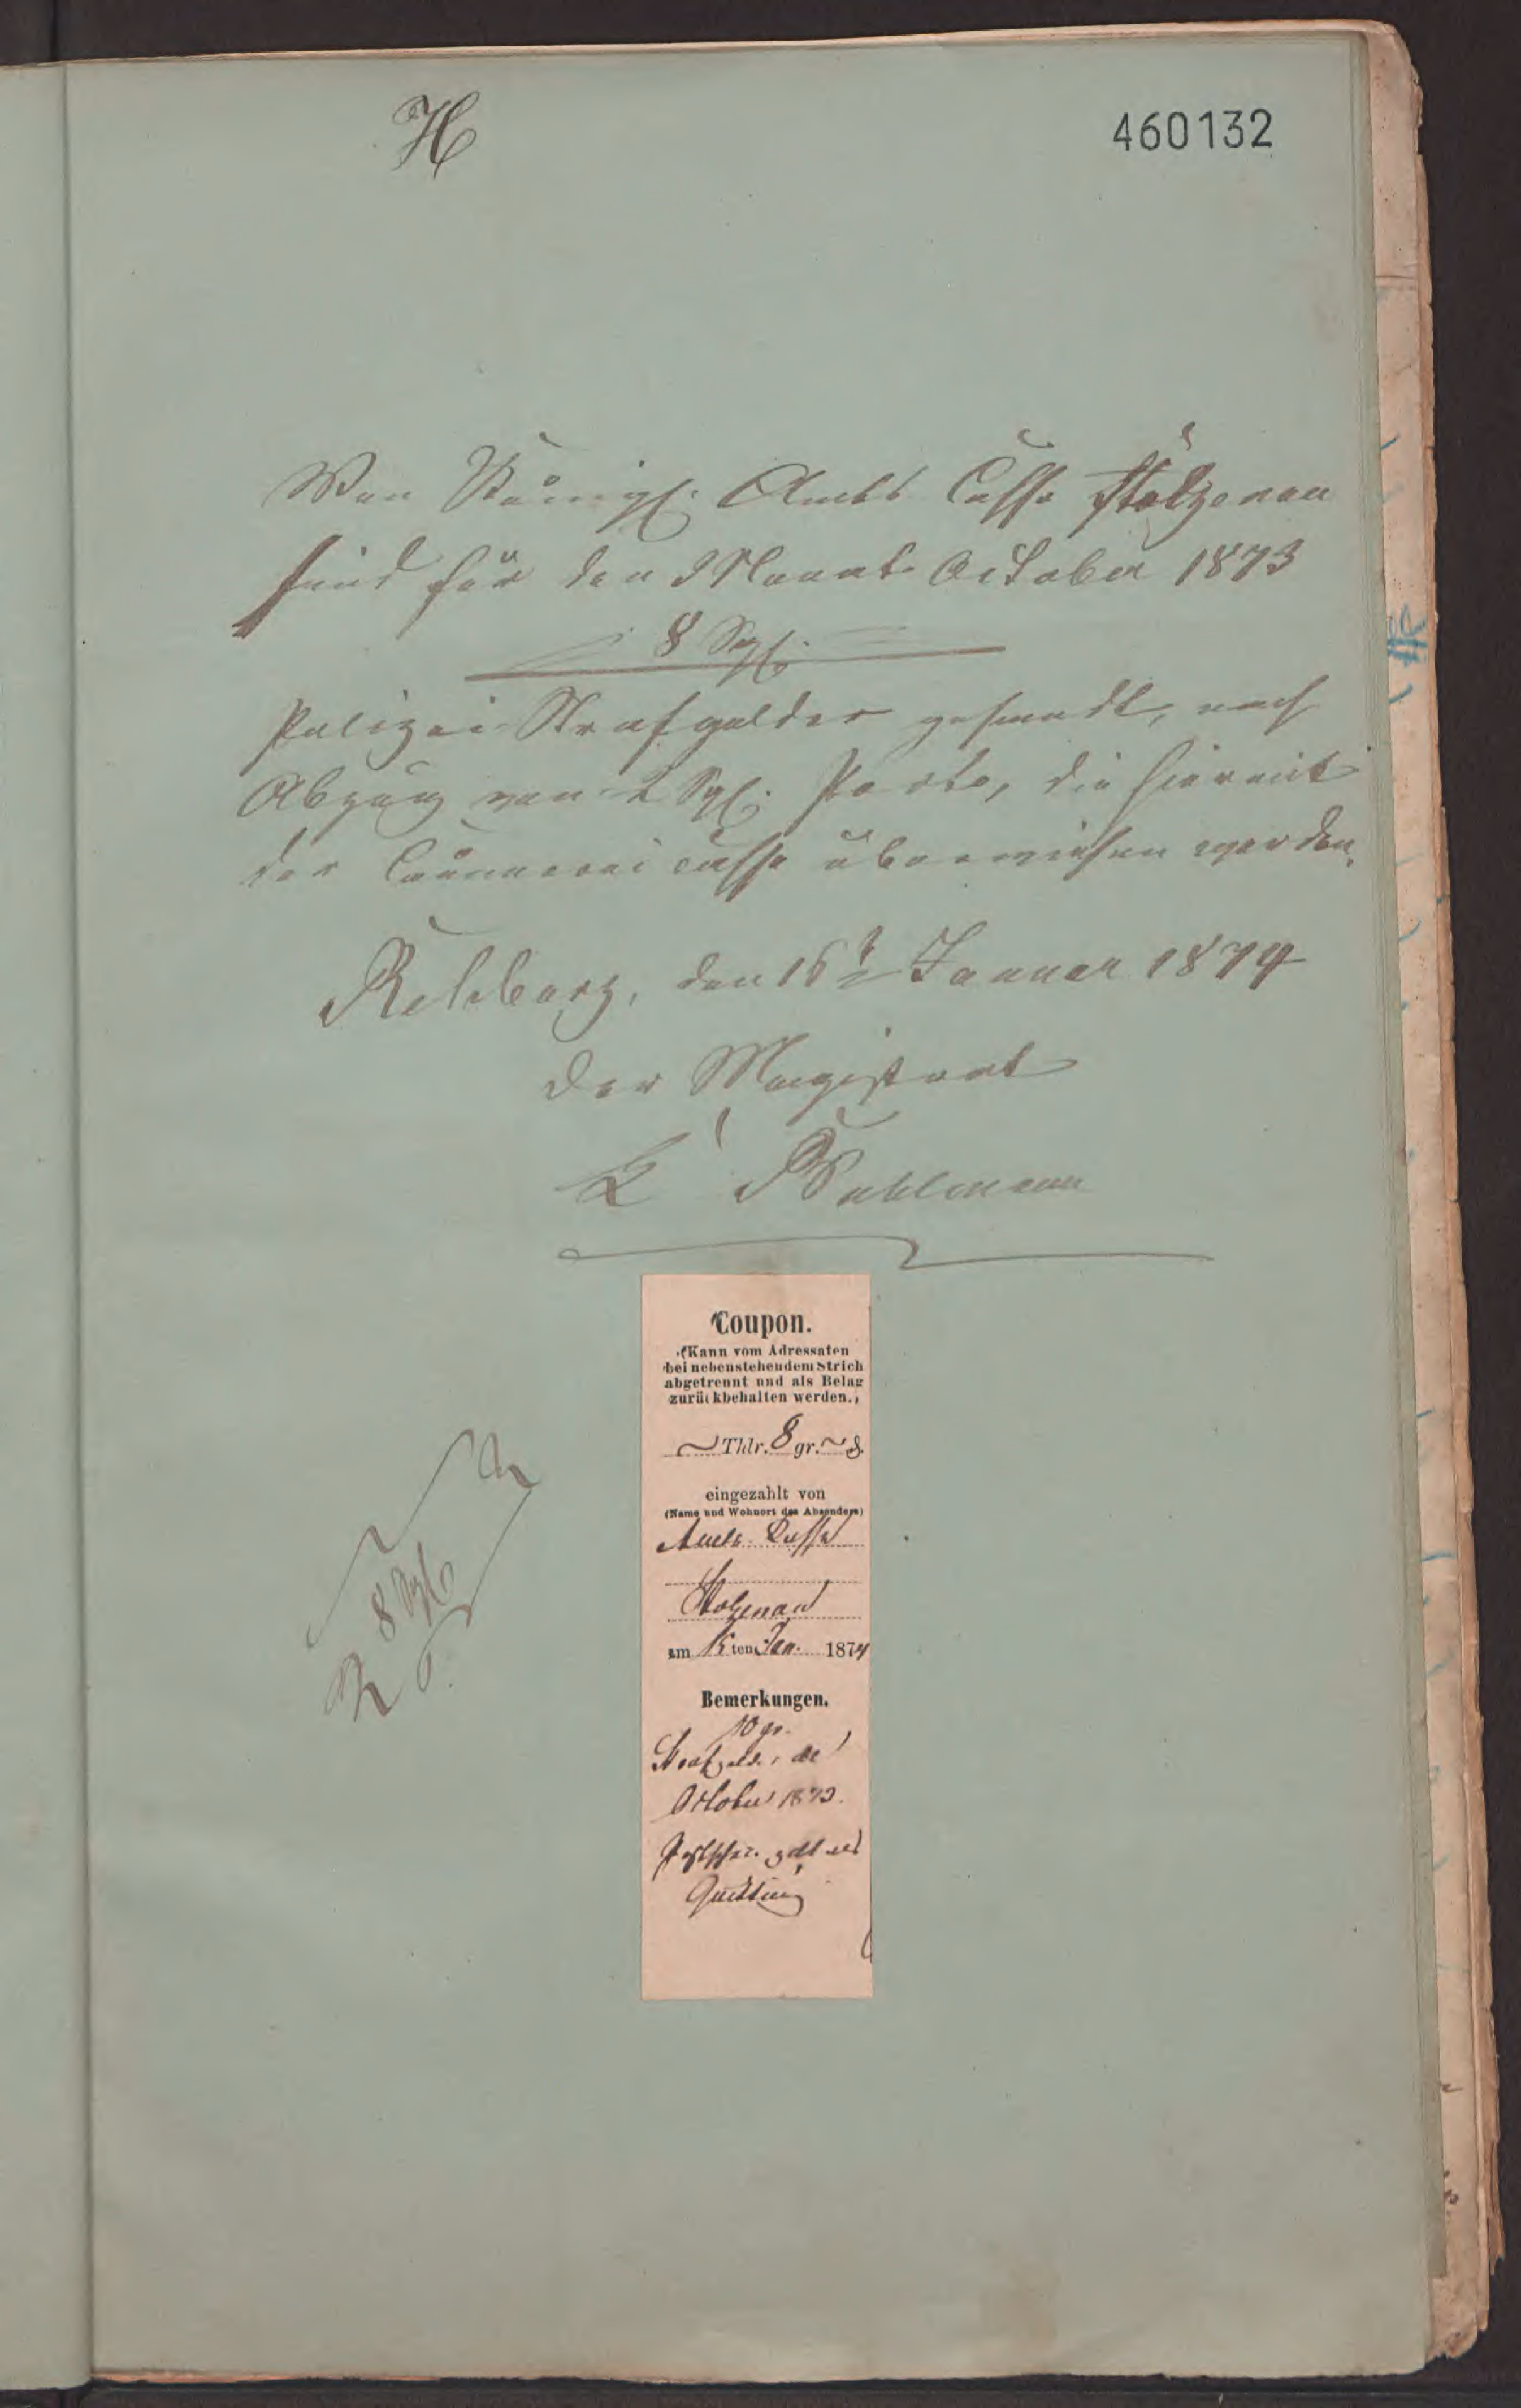 H
460132
Von Königl. Amts Casse Stolzenau
sind für den Monat October 1873
8 Sgl.
Polizei Strafgelder gesandt, nach
Abzug von 2 Sgl. Porto, die hiermit
der Cämmerei Casse überwiesen werden.
Rehburg, den 16t Januar 1874
Der Magistrat
Coupon.
(Kann vom Adressaten
bei nebenstehendem Strich
abgetrennt und als Belag
zurückbehalten werden.)
~ Thlr. 8 gr. ~ ₰
eingezahlt von
(Name und Wohnort des Absenders)
Amts Casse
Stolzenau
am 15 ten Jan. 1874
Bemerkungen.
10 gr.
Strafgelder de
October 1873.
Postschein gilt als
Quittung
8